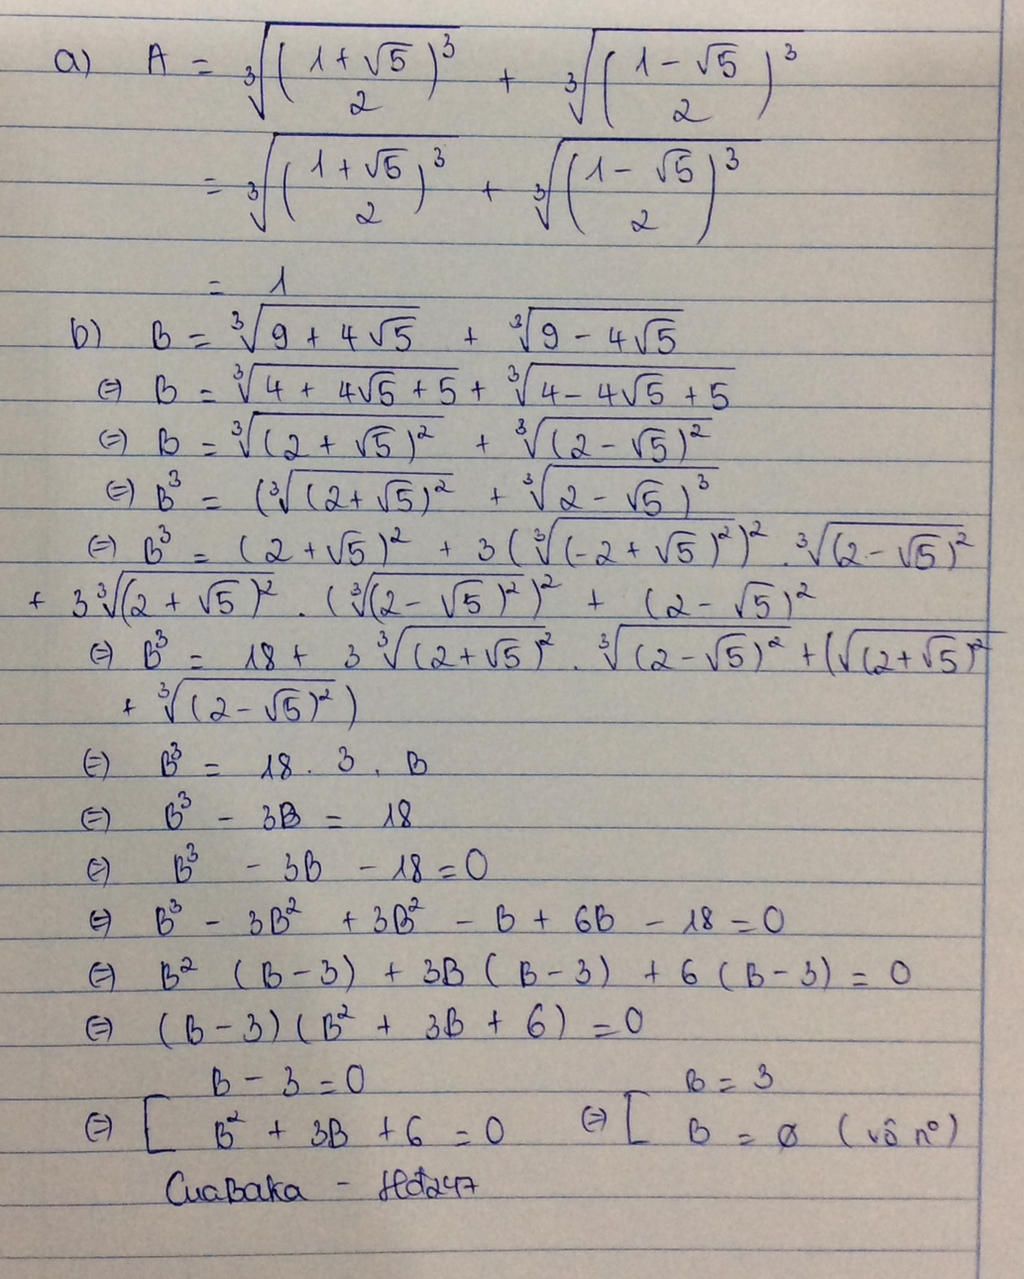 a) A = ∛((1+√5)/2)³ + ∛((1-√5)/2)³
= ∛((1+√5)/2)³ + ∛((1-√5)/2)³
= 1
b) B = ∛(9+4√5) + ∛(9-4√5)
(=) B = ∛(4+4√5+5) + ∛(4-4√5+5)
(=) B = ∛(2+√5)² + ∛(2-√5)²
(=) B³ = (∛(2+√5)² + ∛2-√5)³
(=) B³ = (2+√5)² + 3(∛(-2+√5)²)² . ∛(2-√5)²
+ 3∛(2+√5)² . (∛(2-√5)²)² + (2-√5)²
(=) B³ = 18 + 3∛(2+√5)² . ∛(2-√5)² + (√(2+√5)²
+ ∛(2-√5)²)
(=) B³ = 18 . 3 . B
(=) B³ - 3B = 18
(=) B³ - 3B - 18 = 0
(=) B³ - 3B² + 3B² - B + 6B - 18 = 0
(=) B² (B-3) + 3B (B-3) + 6 (B-3) = 0
(=) (B-3) (B² + 3B + 6) = 0
B - 3 = 0 B = 3
(=) [ B² + 3B + 6 = 0 (=) [ B = ø (vô n°)
CuaBaKa - Hđ247